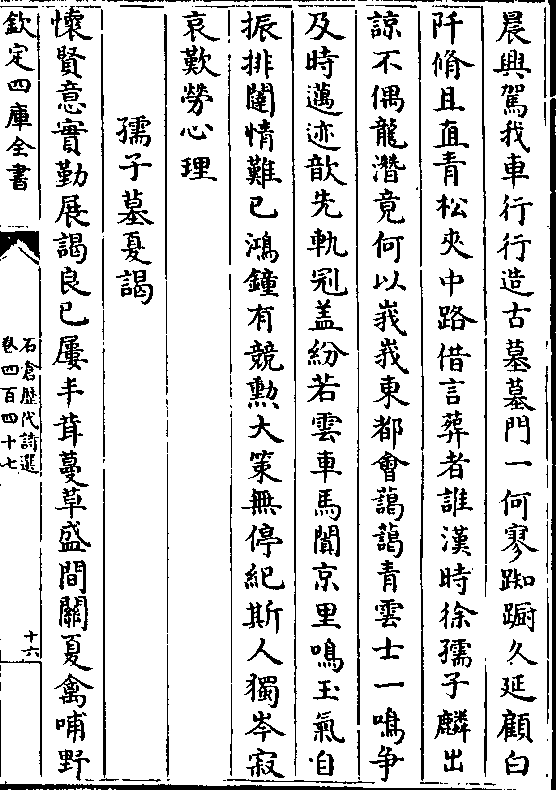 晨興駕我車行行造古墓墓門一何寥踟蹰久延顧白
阡脩且直青松夾中路借言葬者誰漢時徐孺子麟出
諒不偶龍潛竟何以峩峩東都會藹藹青雲士一鳴争
及時邁迹歆先軌冠盖紛若雲車馬闐京里鳴玉氣自
振排闥情難已鴻鐘有競勲大䇿無停紀斯人獨岑寂
哀歎勞心理
孺子墓夏謁
懷賢意實勤展謁良已屢丰茸蔓草盛間關夏禽哺野
欽定四庫全書
石倉歴代詩選
卷四百四十七
十六